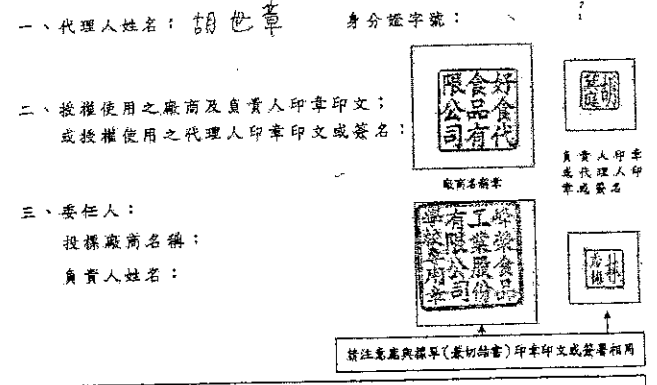 一、代理人姓名：胡世章 身分證字號：
二、授權使用之廠商及負責人印章印文；
或授權使用之代理人印章印文或簽名：
好食代
食品有
限公司
廠商名稱章
負責人印章
或代理人印
章或簽名
三、委任人：
投標廠商名稱：
負責人姓名：
食品
工業股份
有限公司
專用章
林
請注意應與標單(兼切結書)印章印文或簽署相同